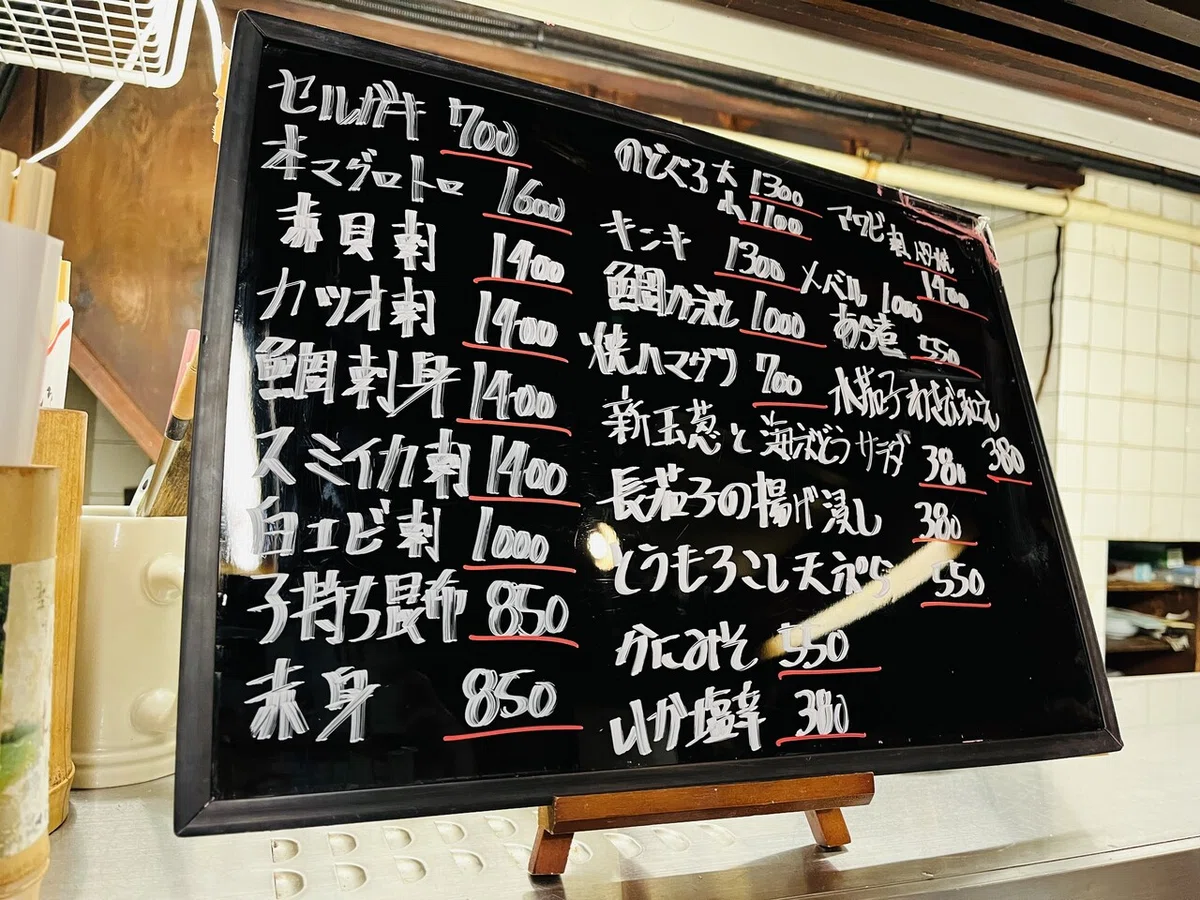 セルガキ 700
本マグロトロ 1600
赤貝刺 1400
カツオ刺 1400
鯛刺身 1400
スミイカ刺 1400
白エビ刺 1000
子持ち昆布 850
赤身 850
のどぐろ大 1300
小 1100
キンキ 1300
鯛かぶと 1000
焼ハマグリ 700
新玉葱と海ぶどうサラダ 380
長茄子の揚げ浸し 380
とうもろこし天ぷら 550
かにみそ 550
いか塩辛 380
アワビ刺
1400
メバル 1000
あら煮 550
水茄子わさび和え
380